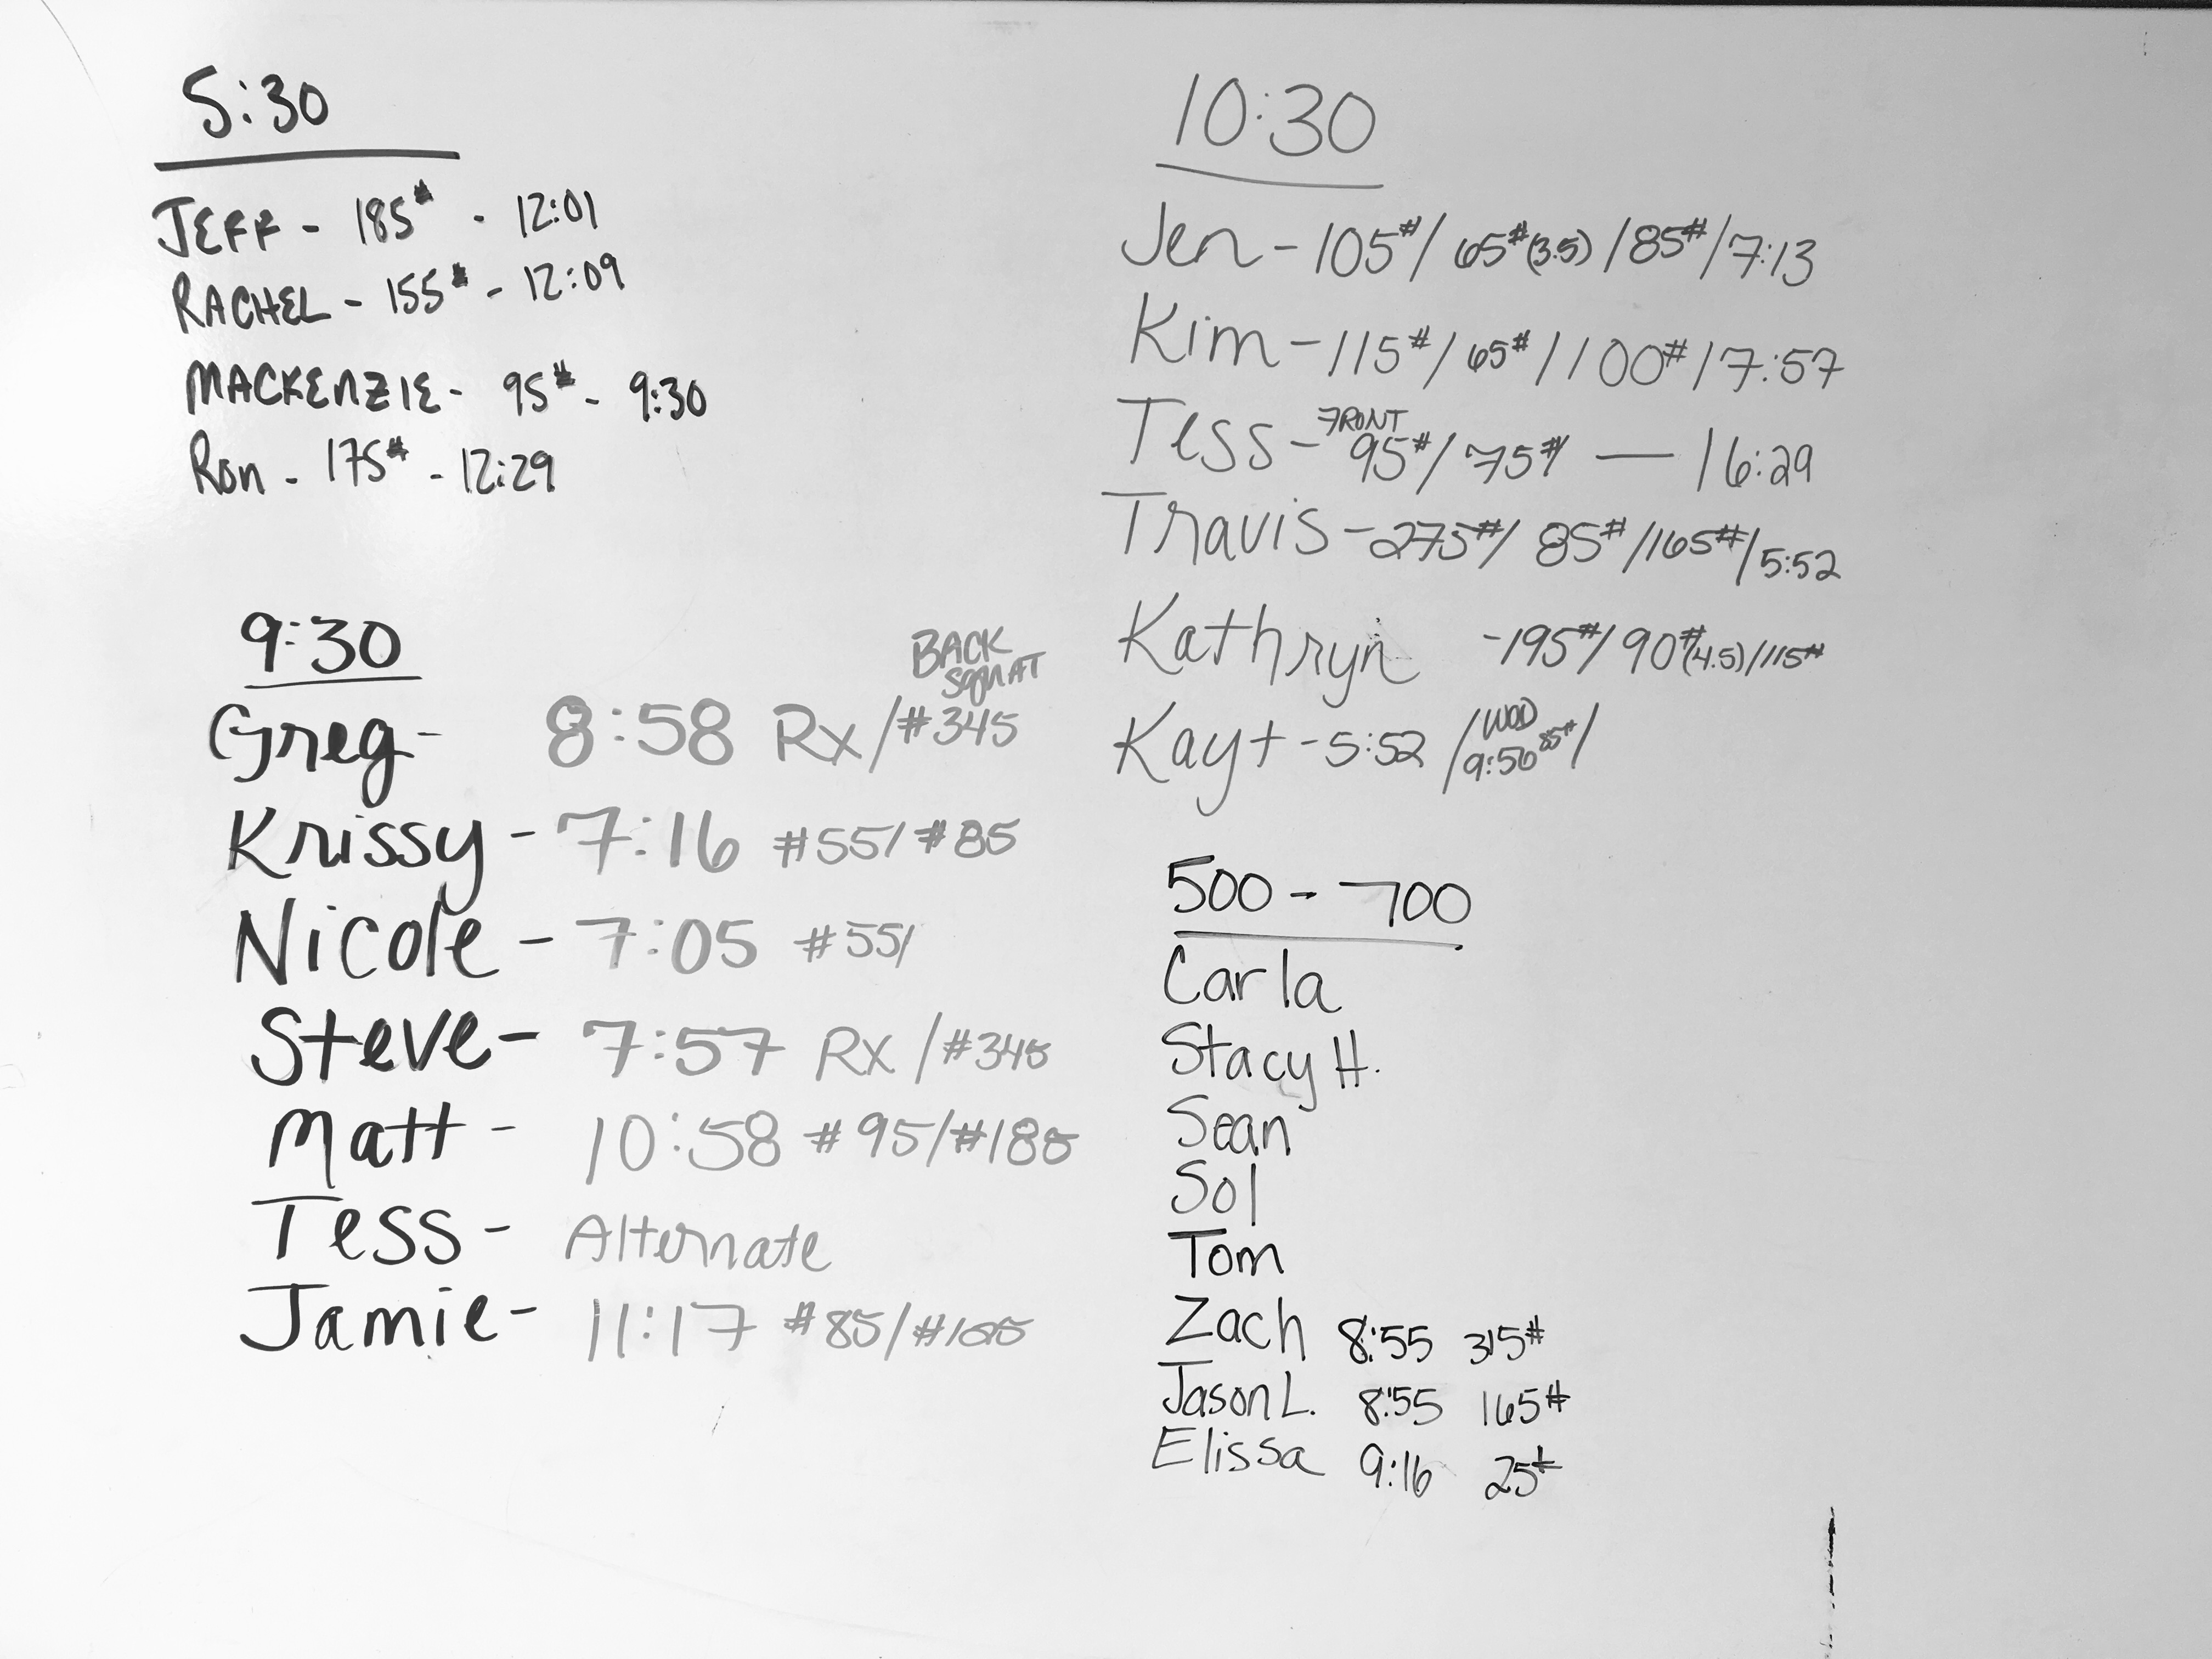 5:30
JEFF - 185# - 12:01
RACHEL - 155# - 12:09
MACKENZIE - 95# - 9:30
Ron - 175# - 12:29
9:30
BACK
SQUAT
Greg - 8:58 Rx /#345
Krissy - 7:16 #55/ #85
Nicole - 7:05 #55/
Steve - 7:57 Rx /#345
Matt - 10:58 #95/#185
Tess - Alternate
Jamie - 11:17 #85/#165
10:30
Jen - 105#/ 65#(3.5) /85#/7:13
Kim - 115#/ 65# /100#/7:57
FRONT
Tess - 95#/ 75# — 16:29
Travis - 275#/ 85# /165#/5:52
Kathryn - 195#/ 90#(4.5)/115#
WOD
Kayt - 5:52 / 9:50 85# /
500 - 700
Carla
Stacy H.
Sean
Sol
Tom
Zach 8:55 315#
Jason L. 8:55 165#
Elissa 9:16 25#